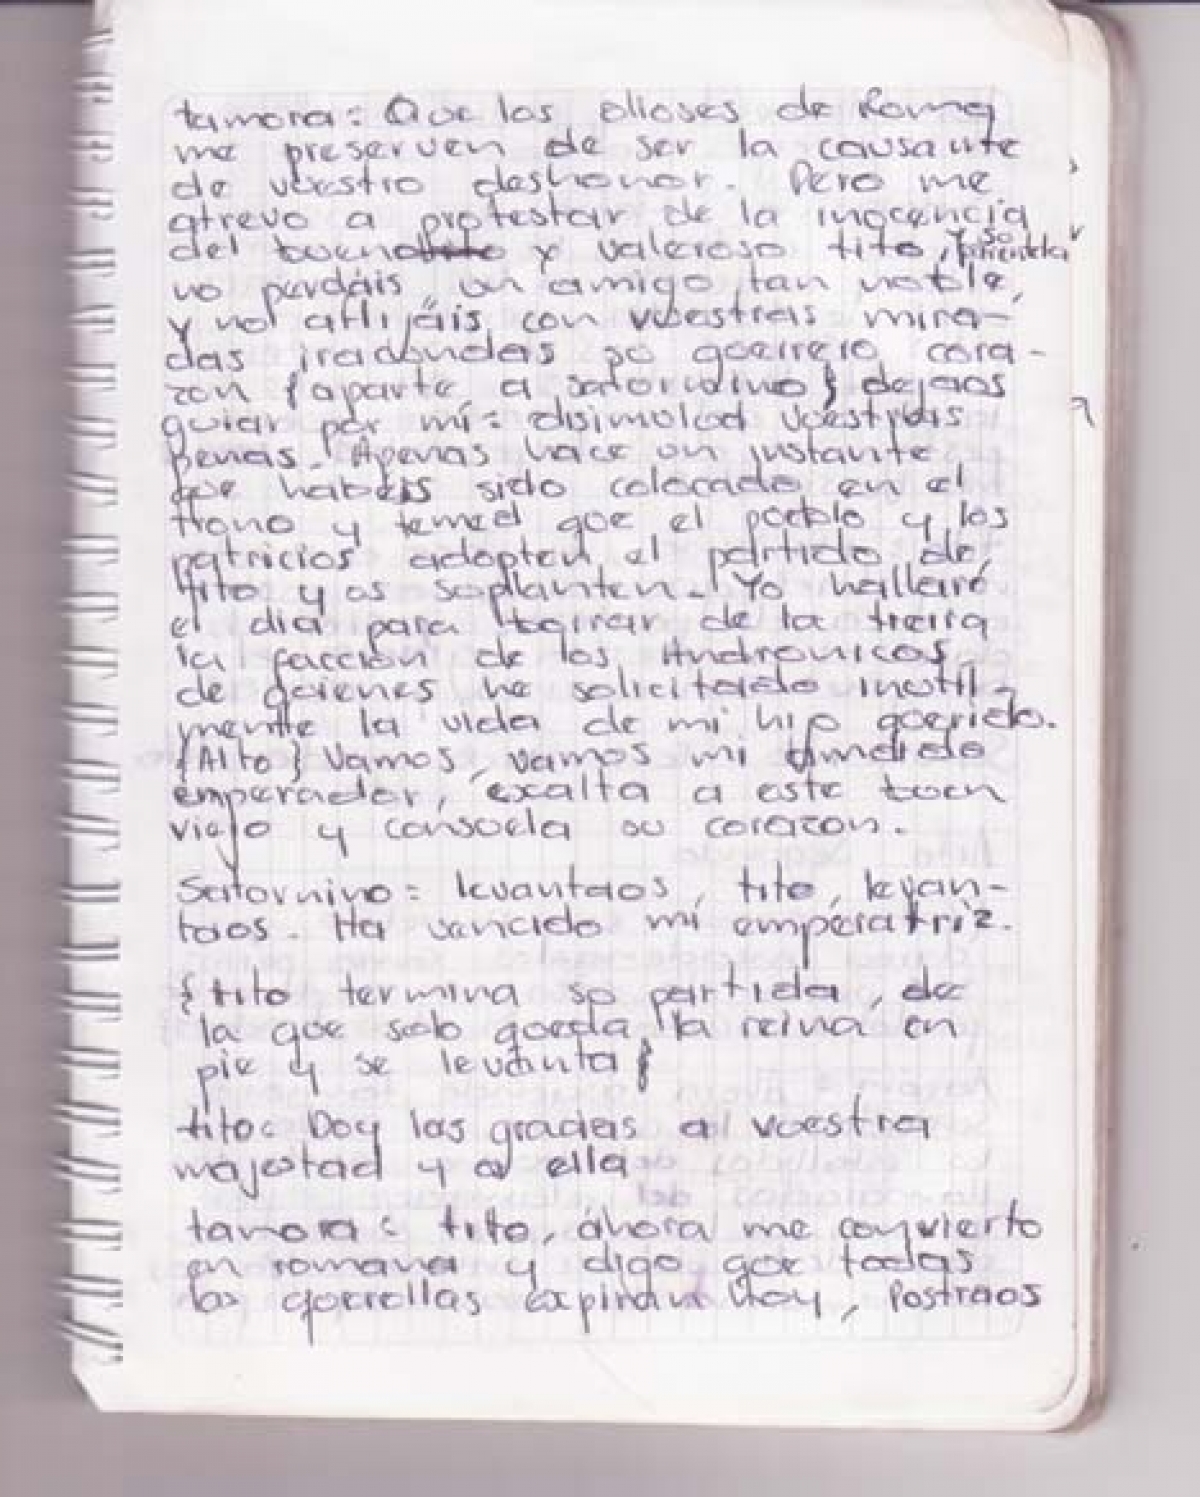 tamora: Que los dioses de Roma
me preserven de ser la causante
de vuestro deshonor. Pero me
atrevo a protestar de la inocencia
del bueno y valeroso tito, y su
no perdáis un amigo tan noble,
y no aflijáis con vuestras mira-
das iracundas su guerrero cora-
zon {aparte a saturnino} dejaos
guiar por mí: disimulad vuestras
penas. Apenas hace un instante
que habéis sido colocado en el
trono y temed que el pueblo y los
patricios adopten el partido de
tito y os suplanten. Yo hallaré
el dia para borrar de la tierra
la facción de los Andronicos,
de quienes he solicitado inutil-
mente la vida de mi hijo querido.
{Alto} Vamos, vamos mi amado
emperador, exalta a este buen
viejo y consuela su corazon.
Saturnino: levantaos, tito, levan-
taos. Ha vencido mi emperatriz.
{tito termina su partida, de
la que solo queda la reina en
pie y se levanta}
tito: Doy las gracias a vuestra
majestad y a ella
tamora: tito, ahora me convierto
en romana y digo que todas
las querellas expiran hoy, Postraos